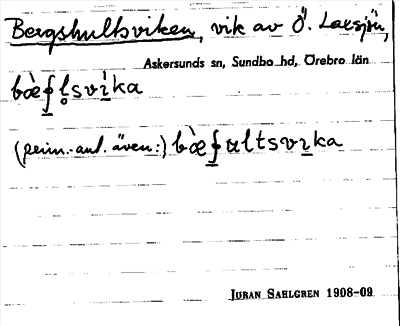 Bergshultsviken, vik av Ö. Laxsjön,
Askersunds sn, Sundbo hd, Örebro län
bæ̀ʂl̥svi̇̀ka
(prim.-ant. även:) bæ̀ʂultsvɩka
JÖRAN SAHLGREN 1908-09